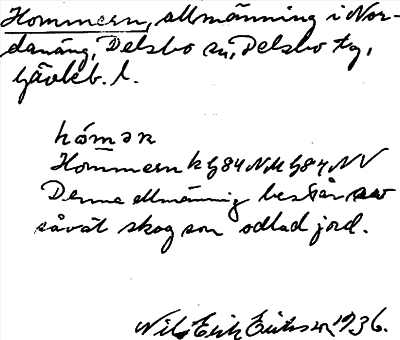 Hommern, allmänning i Nor-
danäng, Delsbo sn, Delsbo tg,
Gävleb. l.
Hommern k G84NM G84NV
Denna allmänning består av
såväl skog som odlad jord.
Nils Erik Eriksson 1936.